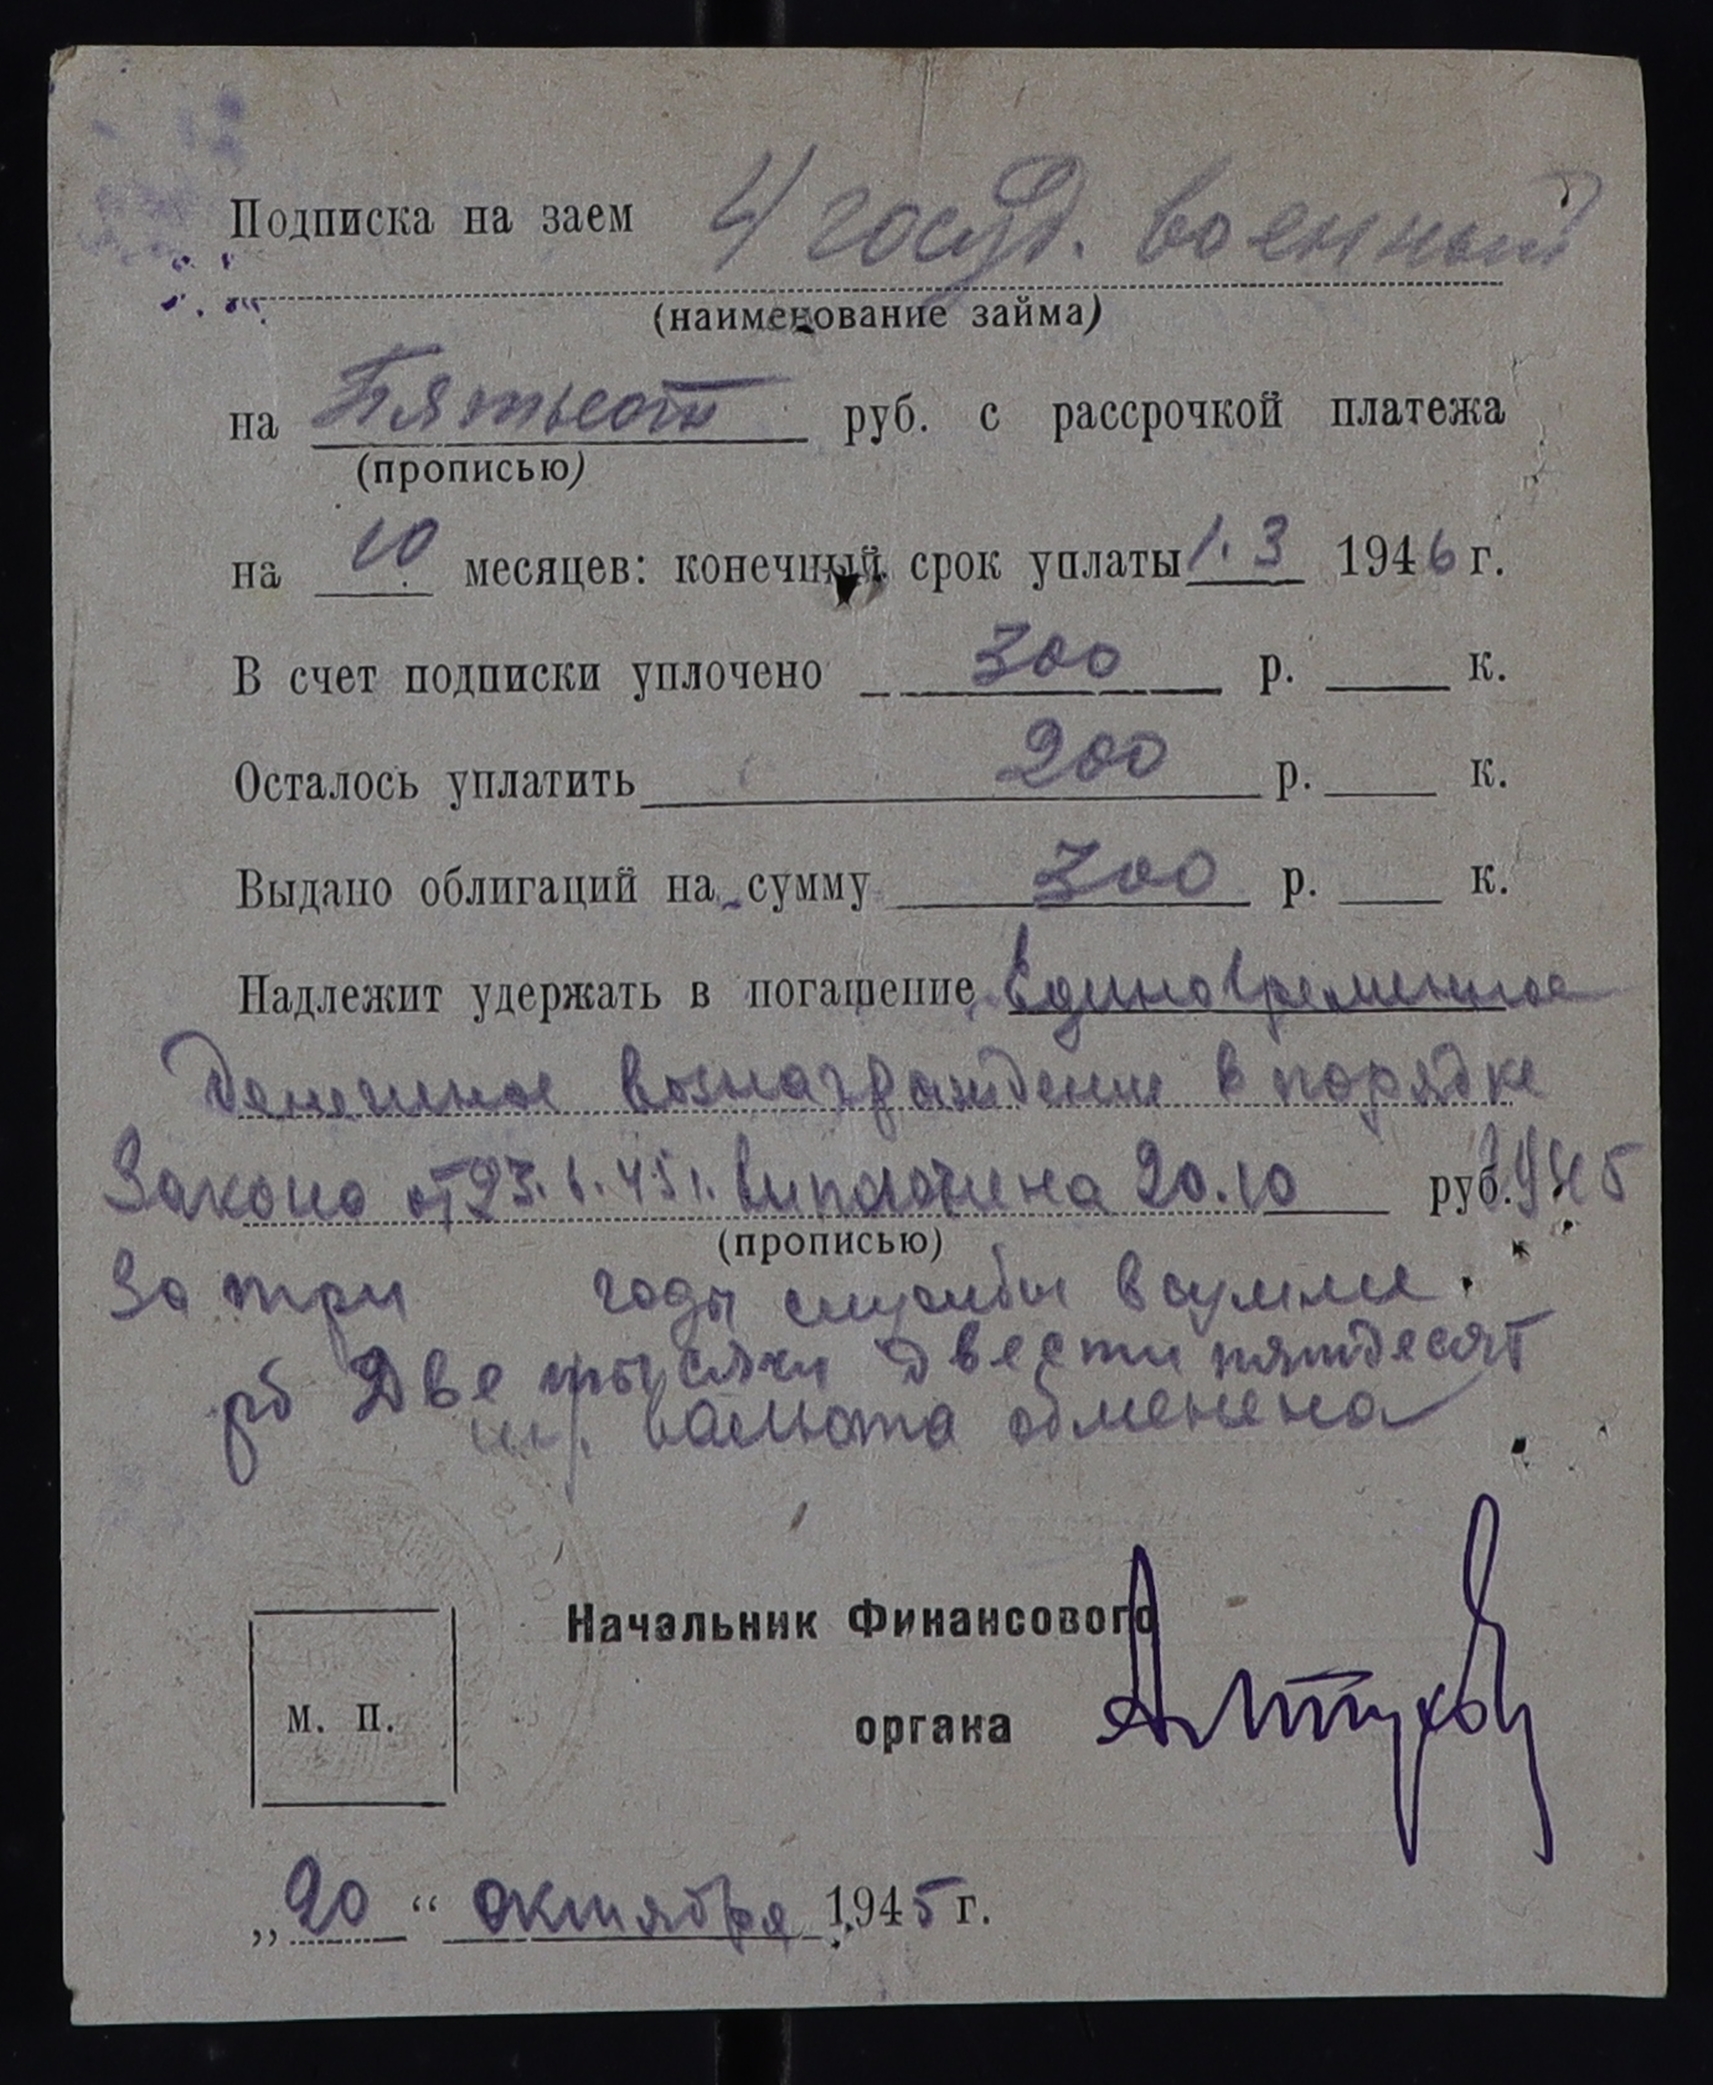 Подписка на заем 4 госуд. военный
(наименование займа)
на Пятьсот руб. с рассрочкой платежа
(прописью)
на 10 месяцев: конечный срок уплаты 1.3 1946 г.
В счет подписки уплочено 300 р. к.
Осталось уплатить 200 р. к.
Выдано облигаций на сумму 300 р. к.
Надлежит удержать в погашение Единовременное
денежное вознаграждение в порядке
Закона от 23.6.45 г. выплочена 20.10 руб. 1945
(прописью)
За три годы службы в сумме
рб Две тысячи двести пятдесят
валюта обменена
Начальник Финансового
органа
м. п.
„20“ октября 1945 г.